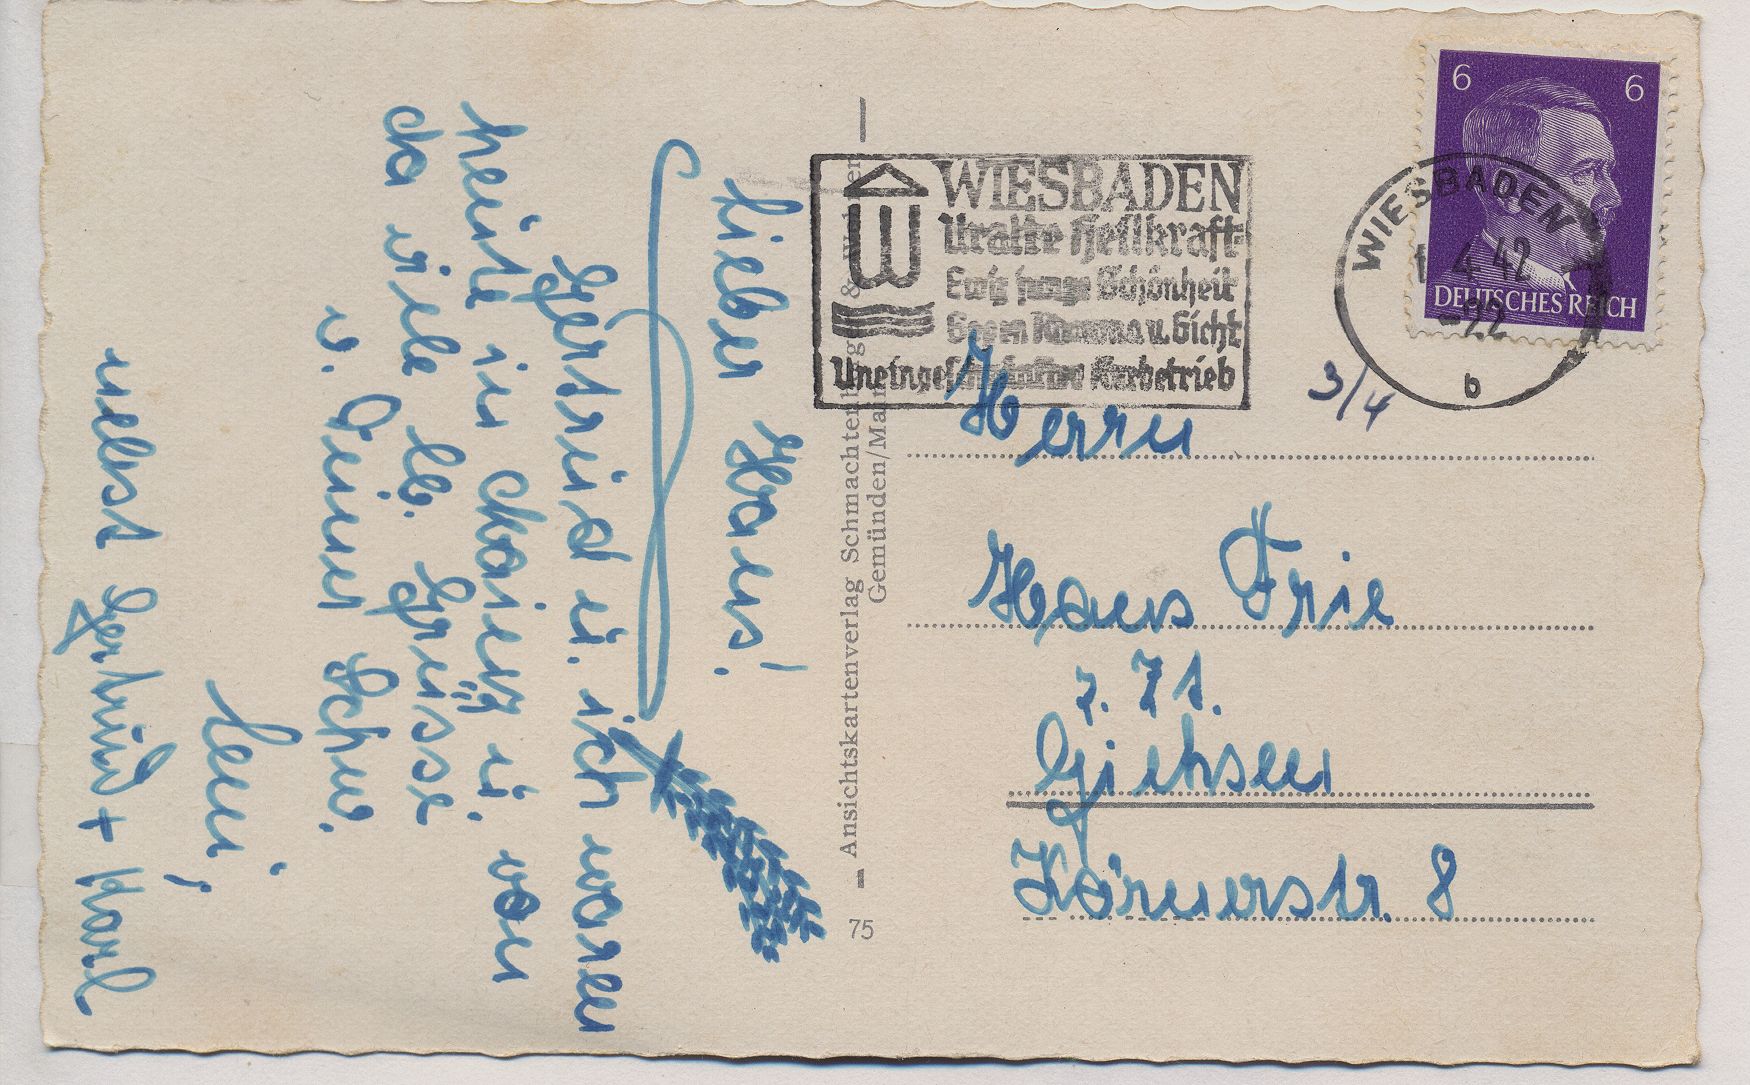 Lieber Hans!
Gertrud u. ich waren
heute in Mainz u. von
da viele lb. Grüsse
v. Deiner Schw.
Leni,
nebst Gertrud + Karl
Ansichtskartenverlag Schmachtenberger &
Gemünden/Main
75
WIESBADEN
Uralte Heilkraft
Ewig junge Schönheit
Gegen Rheuma u. Gicht
Uneingeschränkter Kurbetrieb
6 6
DEUTSCHES REICH
WIESBADEN
4 42
-22
b
3/4
Herrn
Hans Frie
z. Zt.
Giehsen
Körnerstr. 8